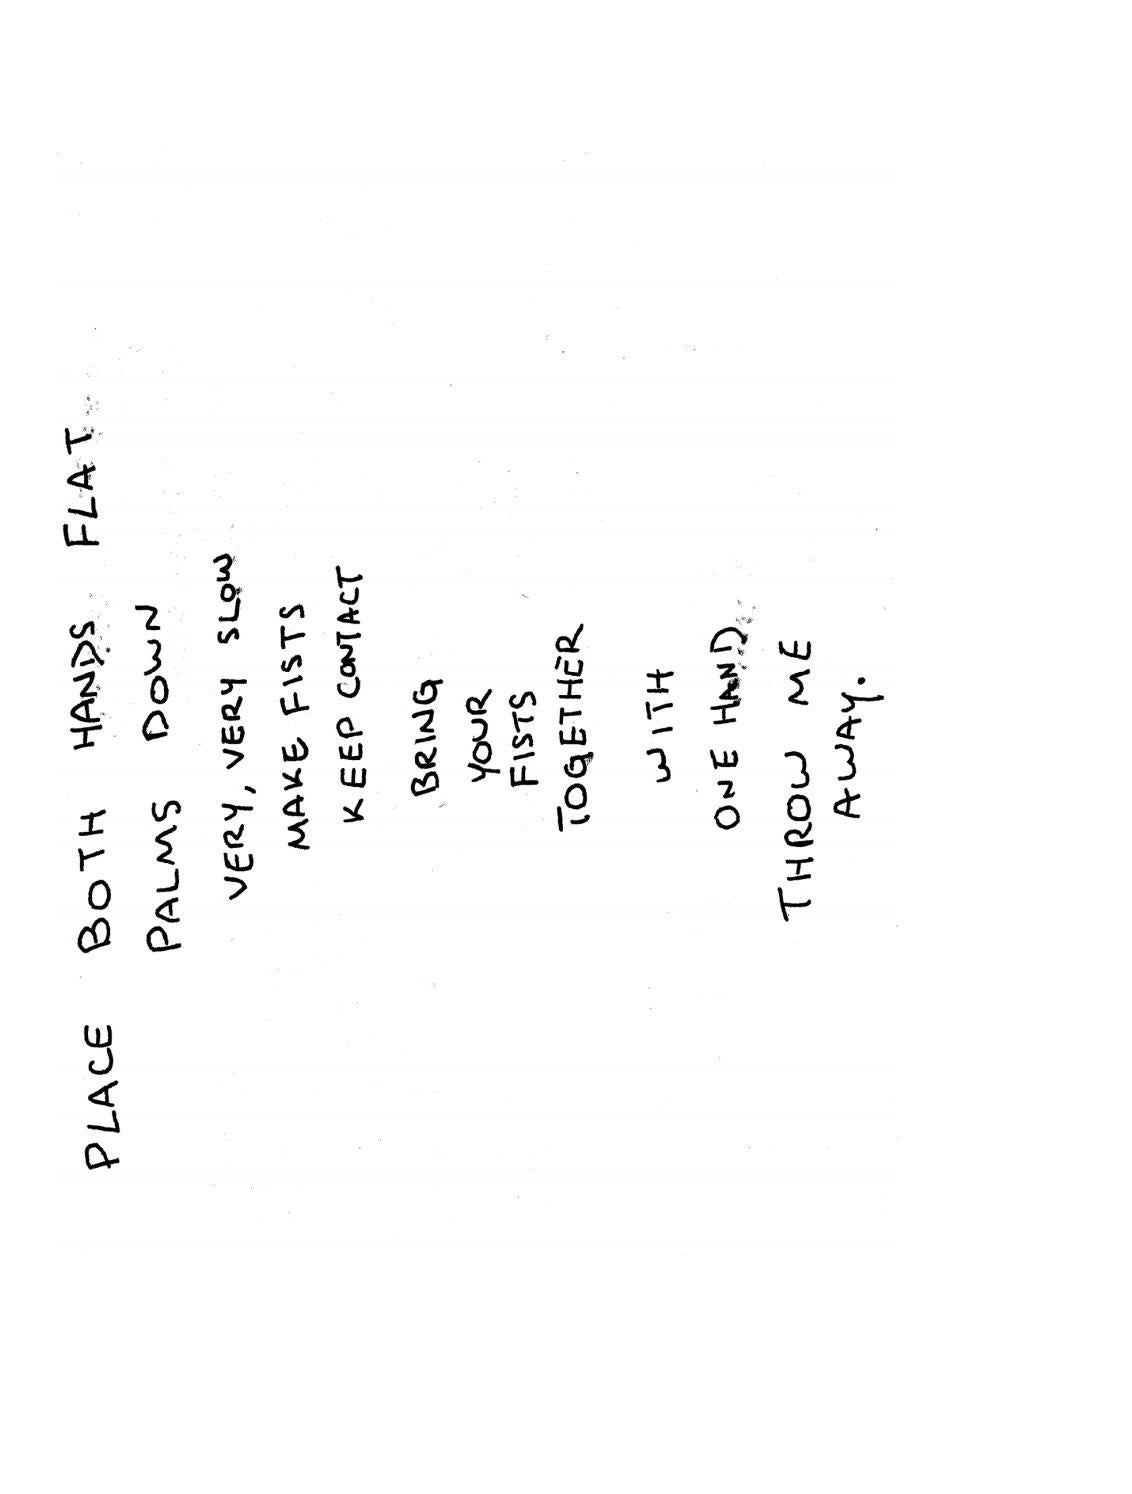 PLACE BOTH HANDS FLAT
PALMS DOWN
VERY, VERY SLOW
MAKE FISTS
KEEP CONTACT
BRING
YOUR
FISTS
TOGETHER
WITH
ONE HAND
THROW ME
AWAY.